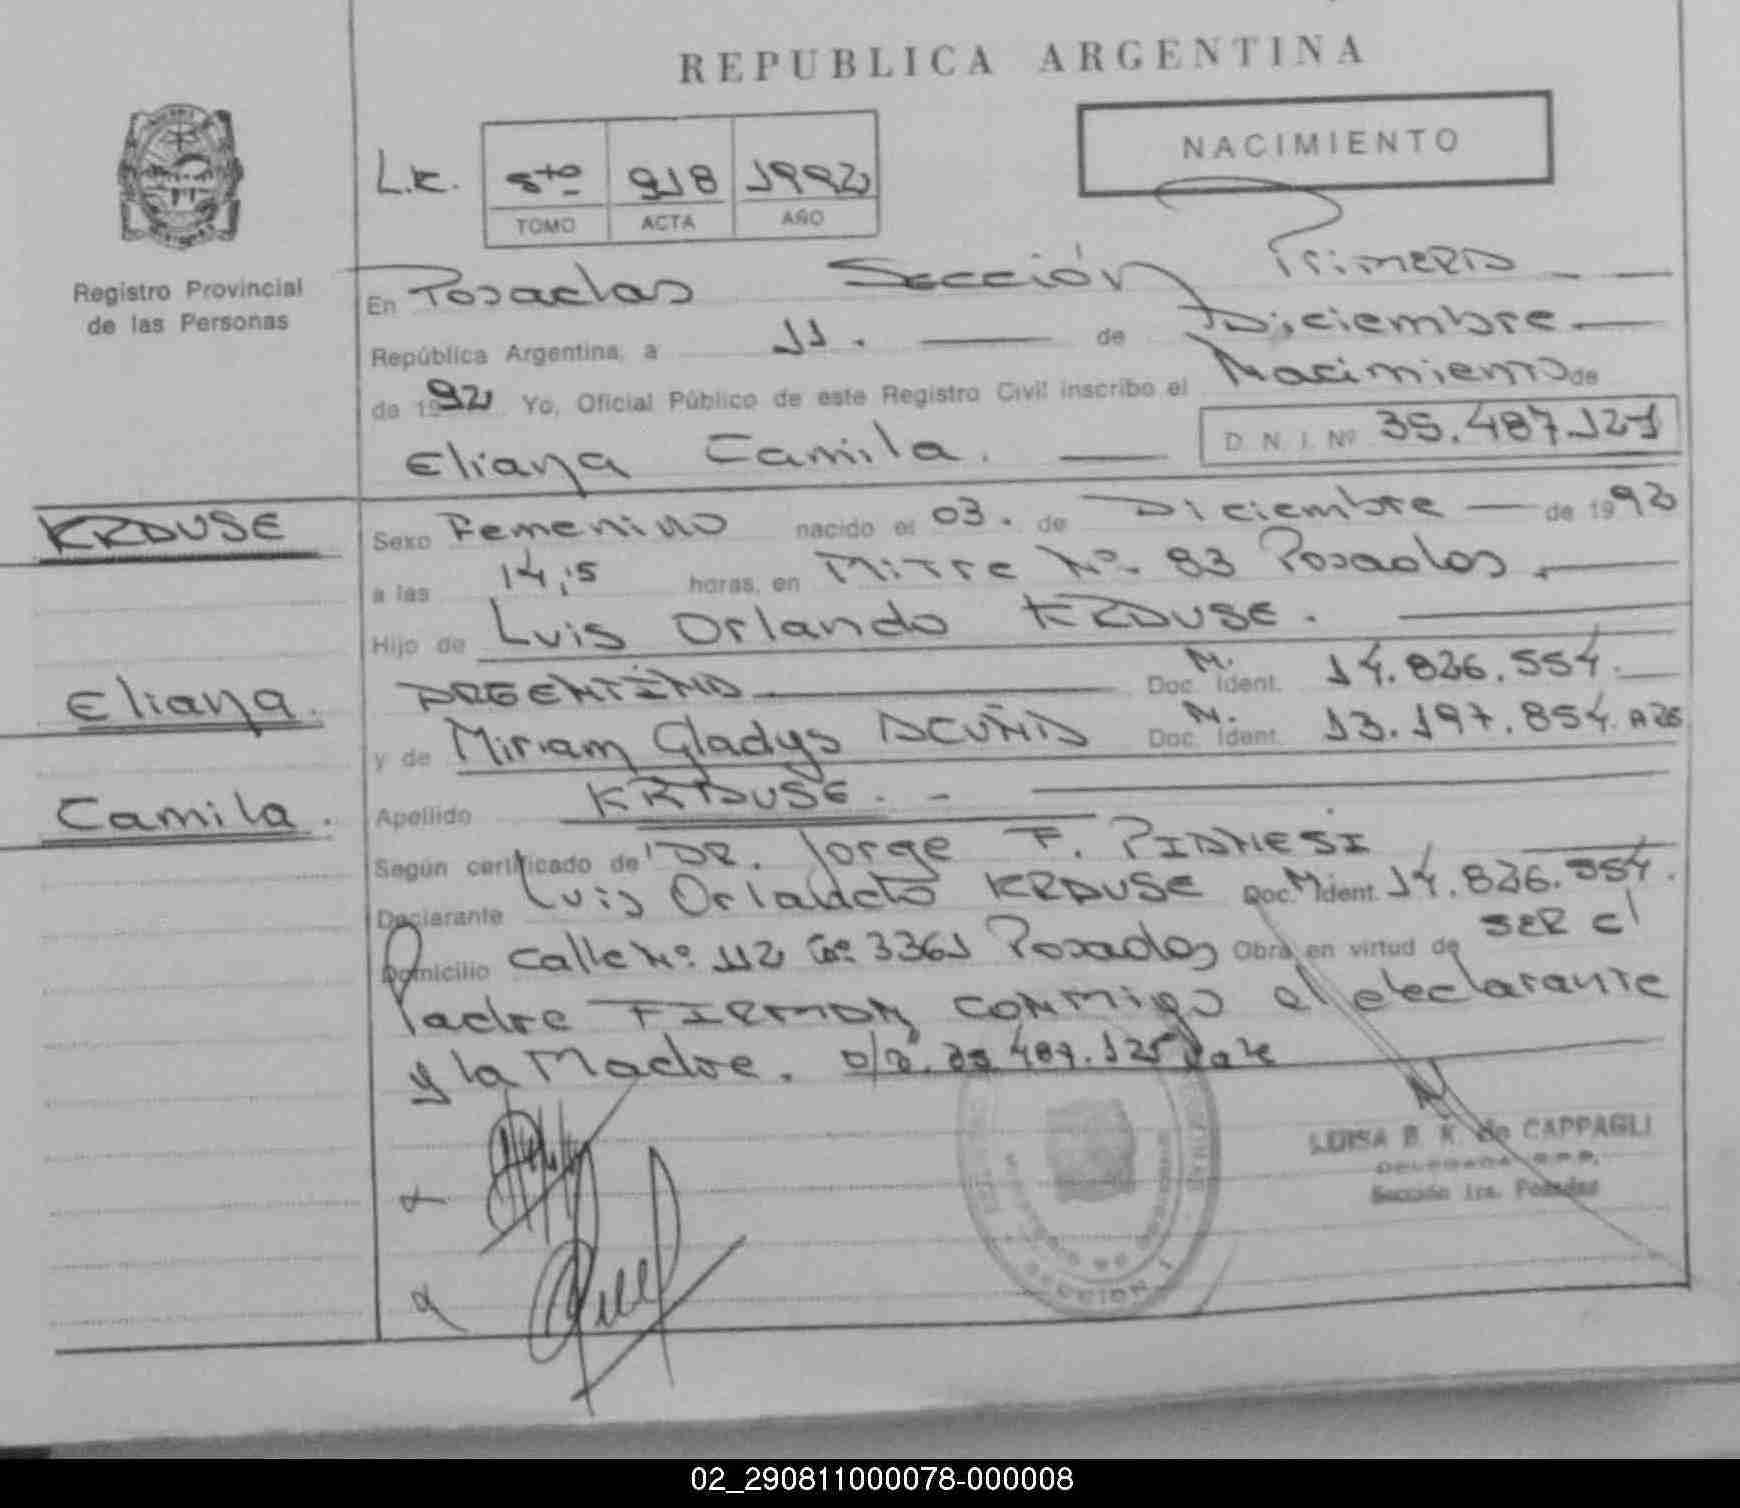 REPUBLICA ARGENTINA
NACIMIENTO
L.E. 5to 918 1992
TOMO ACTA AÑO
Registro Provincial
de las Personas
En Posadas Sección Primera
República Argentina, a 11. de Diciembre
de 1992 Yo, Oficial Público de este Registro Civil inscribo el Nacimiento de
Eliana Camila. D. N. I. Nº 35.487.121
KRAUSE
Sexo Femenino nacido el 03. de Diciembre de 1992
a las 14,15 horas, en Mitre Nº 83 Posadas.
Hijo de Luis Orlando KRAUSE.
Eliana.
ARGENTINA Doc. M. Ident. 14.826.554.
y de Miriam Gladys ACUÑA Doc. M. Ident. 13.197.854.
Camila.
Apellido KRAUSE. -
Según certificado de DR. Jorge F. PIANESI
Declarante Luis Orlando KRAUSE Doc. M. Ident. 14.826.554.
Domicilio Calle Nº 112 3361 Posados Obra en virtud de SER el
Padre FIRMAN CONMigo el declarante
y la Madre.
LUISA B. K. de CAPPAGLI
DELEGADA R.P.P.
Sección 1ra. Posadas
SECCION 1
02_290811000078-000008